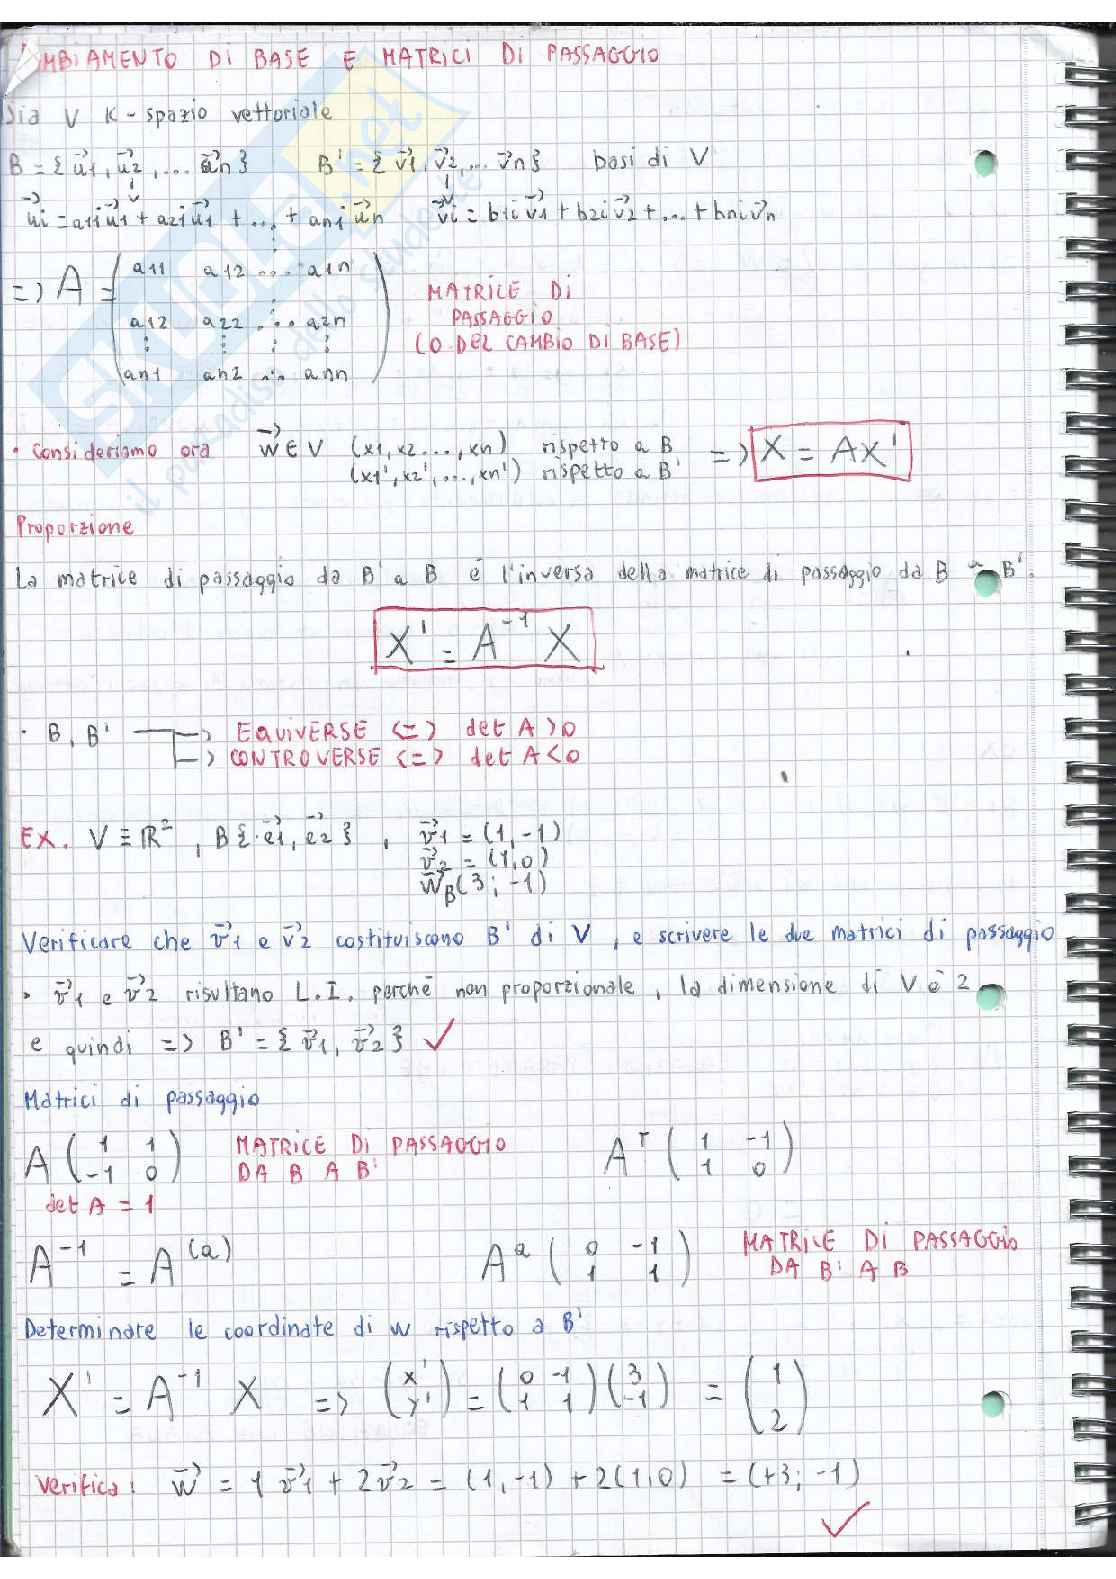 MBIAMENTO DI BASE E MATRICI DI PASSAGGIO
Sia V K-spazio vettoriale
B = {u⃗1, u⃗2, ... u⃗n} B' = {v⃗1, v⃗2, ... v⃗n} basi di V
u⃗i = a1i u⃗1 + a2i u⃗1 + ... + ani u⃗n v⃗i = b1i v⃗1 + b2i v⃗2 + ... + bni v⃗n
=> A = ( a11 a12 ... a1n
a12 a22 ... a2n
⋮ ⋮ ⋮ ⋮
an1 an2 ... ann )
MATRICE DI
PASSAGGIO
(O DEL CAMBIO DI BASE)
• Consideriamo ora w⃗ ∈ V (x1, x2 ..., xn) rispetto a B
(x1', x2', ..., xn') rispetto a B' => X = AX'
Proporzione
La matrice di passaggio da B' a B é l'inversa della matrice di passaggio da B a B'.
X' = A⁻¹ X
• B, B' → EQUIVERSE <=> det A > 0
→ CONTROVERSE <=> det A < 0
EX. V ≡ ℝ², B{e⃗1, e⃗2}, v⃗1 = (1, -1)
v⃗2 = (1, 0)
w⃗B (3; -1)
Verificare che v⃗1 e v⃗2 costituiscono B' di V, e scrivere le due matrici di passaggio
• v⃗1 e v⃗2 risultano L.I. perché non proporzionale, la dimensione di V è 2
e quindi => B' = {v⃗1, v⃗2} ✓
Matrici di passaggio
A ( 1 1
-1 0 ) MATRICE DI PASSAGGIO
DA B A B' Aᵀ ( 1 -1
1 0 )
det A = 1
A⁻¹ = A⁽ᵃ⁾ Aᵃ ( 0 -1
1 1 ) MATRICE DI PASSAGGIO
DA B' A B
Determinare le coordinate di w rispetto a B'
X' = A⁻¹ X => ( x'
y' ) = ( 0 -1
1 1 ) ( 3
-1 ) = ( 1
2 )
Verifica: w⃗ = 1 v⃗1 + 2 v⃗2 = (1, -1) + 2(1, 0) = (+3; -1)
✓
SKUOLA.net
il paradiso dello studente